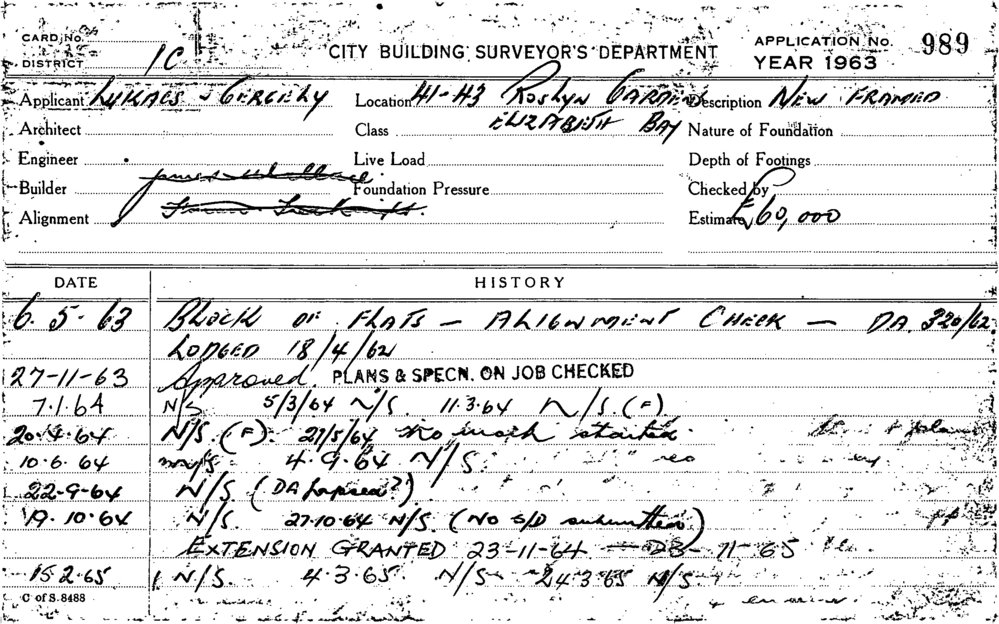 CARD No.
DISTRICT 1C
CITY BUILDING SURVEYOR'S DEPARTMENT
APPLICATION No. 989
YEAR 1963
Applicant LUKACS & GERGELY Location 41-43 ROSLYN GARDENS Description NEW FRAMED
ELIZABETH BAY
Architect Class Nature of Foundation
Engineer Live Load Depth of Footings
Builder James Wallace Foundation Pressure Checked by
Alignment Estimate £60,000
DATE HISTORY
6.5.63 BLOCK OF FLATS - ALIGNMENT CHECK - DA. 320/62
LODGED 18/4/62
27-11-63 Approved. PLANS & SPECN. ON JOB CHECKED
7.1.64 N/S 5/3/64 N/S. 11.3.64 N/S. (F)
20.4.64 N/S. (F). 27/5/64 No work started.
10.6.64 N/S. 4.9.64 N/S
22-9-64 N/S (DA lapsed?)
19.10.64 N/S. 27.10.64 N/S. (No S/D submitted)
EXTENSION GRANTED 23-11-64 - 23-11-65
15.2.65 N/S. 4.3.65. N/S 24.3.65 N/S
C of S. 8488